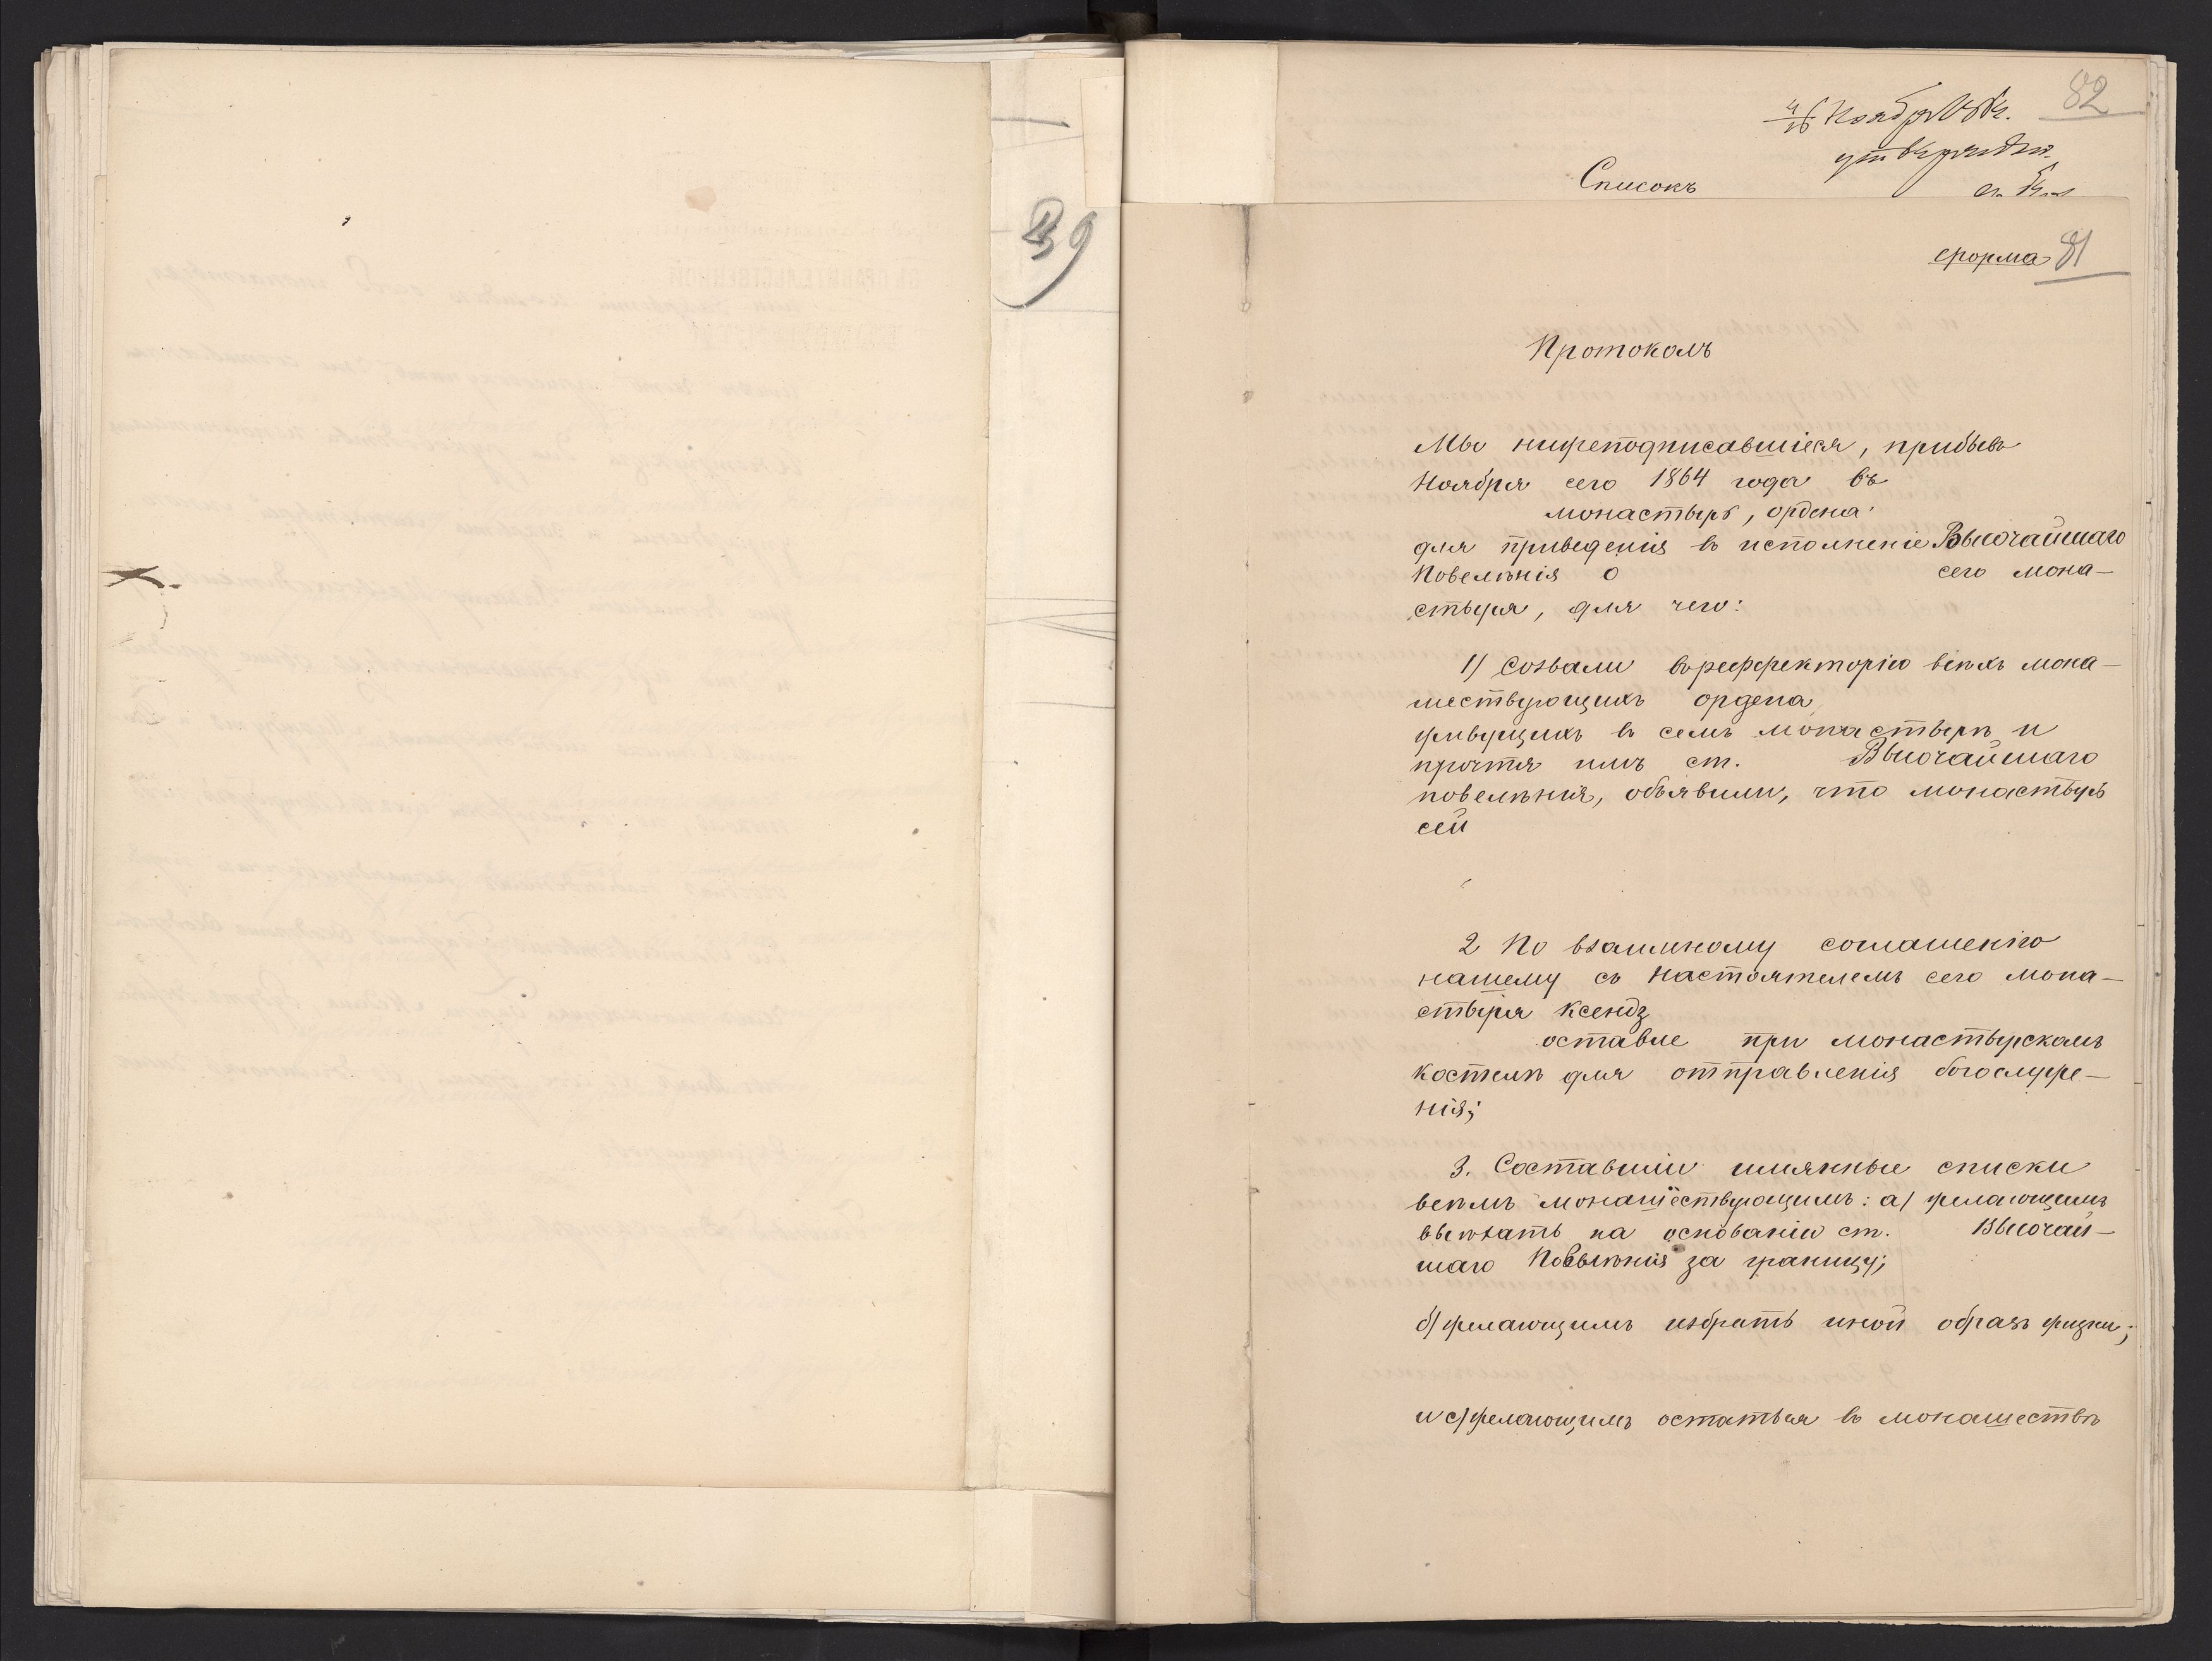 39
82
4/16 Ноября 1864 г.
утвержден.
Списокъ
форма 81
Протоколъ
Мы нижеподписавшіеся, прибывъ
Ноября сего 1864 года въ
монастырь, ордена
для приведенія въ исполненіе Высочайшаго
Повелѣнія о сего мона-
стыря, для чего:
1) Созвали въ реффекторію всѣхъ мона-
шествующихъ ордена
живущихъ въ семъ монастырѣ и
прочтя имъ ст. Высочайшаго
повелѣнія, объявили, что монастырь
сей
2 По взаимному соглашенію
нашему съ Настоятелемъ сего мона-
стыря Ксендз
оставле при монастырскомъ
костелѣ для отправленія богослуже-
нія;
3. Составили имянные списки
всѣмъ монашествующимъ: а) желающимъ
выѣхать на основаніи ст. Высочай-
шаго Повелѣнія за границу;
б) желающимъ избрать иной образъ жизни;
и с) желающимъ остаться въ монашествѣ